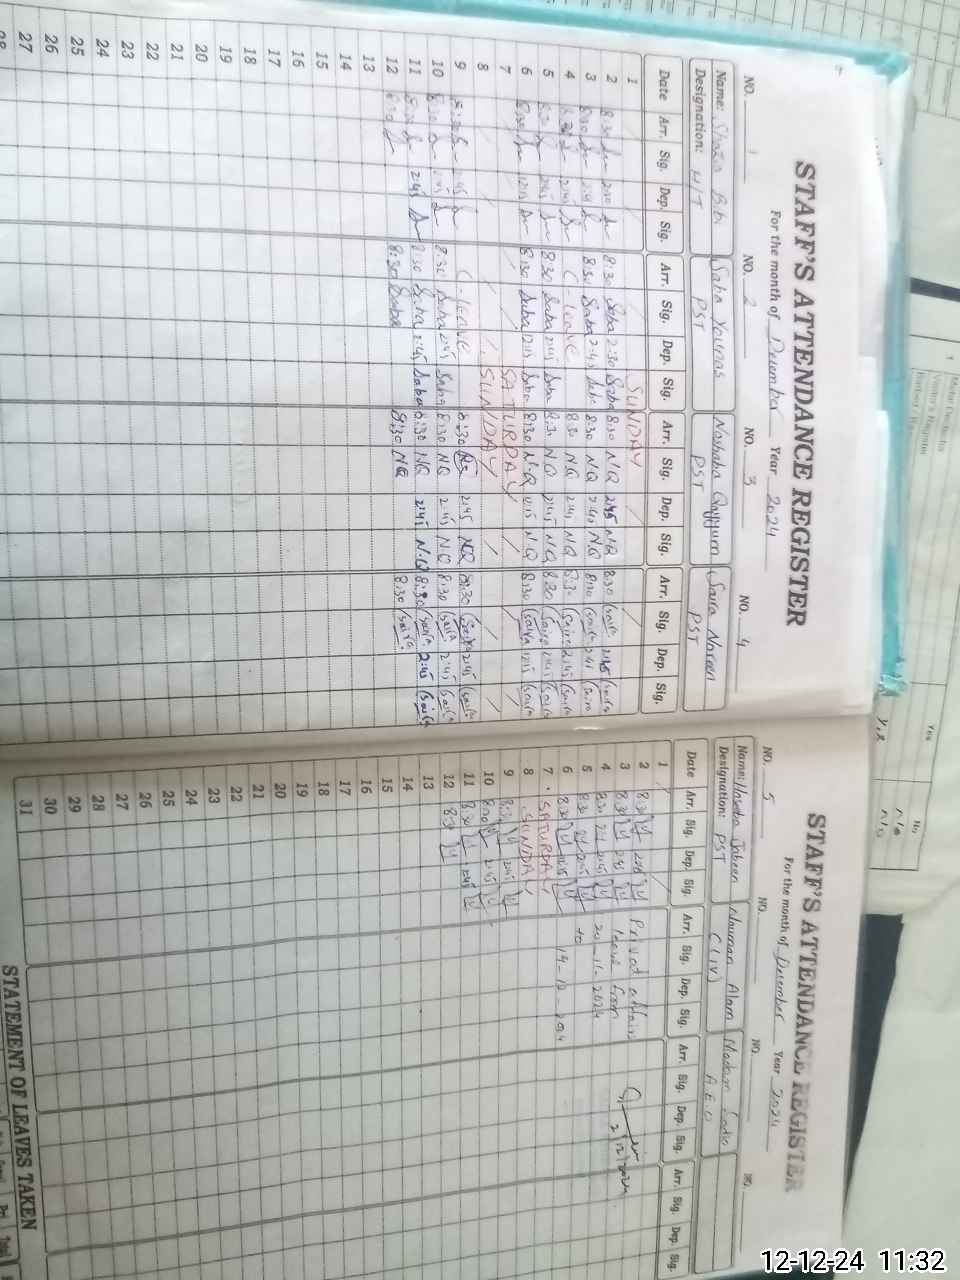 STAFF'S ATTENDANCE REGISTER
For the month of December Year 2024
NO. 1 NO. 2 NO. 3 NO. 4
Name: Shazia Bibi Saba Younas Noshaba Qayyum Saira Noreen
Designation: H/T PST PST PST
Date Arr. Sig. Dep. Sig. Arr. Sig. Dep. Sig. Arr. Sig. Dep. Sig. Arr. Sig. Dep. Sig.
1 SUNDAY
2 8:30 2:30 8:30 Saba 2:30 Saba 8:30 NQ 2:45 NQ 8:30 Saira 2:45 Saira
3 8:30 8:30 Saba 2:45 Saba 8:30 NQ 2:45 NQ 8:30 Saira 2:45 Saira
4 8:30 2:45 C-leave 8:30 NQ 2:45 NQ 8:30 Saira 2:45 Saira
5 8:30 2:45 8:30 Saba 2:45 Saba 8:30 NQ 2:45 NQ 8:30 Saira 2:45 Saira
6 8:30 12:15 8:30 Saba 12:15 Saba 8:30 N.Q 12:15 NQ 8:30 Saira 12:15 Saira
7 SATURDAY
8 SUNDAY
9 8:30 2:45 C-leave 8:30 NQ 2:45 NQ 8:30 Saira 2:45 Saira
10 8:30 2:45 8:30 Saba 2:45 Saba 8:30 NQ 2:45 NQ 8:30 Saira 2:45 Saira
11 8:30 2:45 8:30 Saba 2:45 Saba 8:30 NQ 2:45 N.Q 8:30 Saira 2:45 Saira
12 8:30 8:30 Saba 8:30 NQ 8:30 Saira
13
14
15
16
17
18
19
20
21
22
23
24
25
26
27
28
STAFF'S ATTENDANCE REGISTER
For the month of December Year 2024
NO. 5 NO. NO. NO.
Name: Jabeen Nouman Alam Madam Sadia
Designation: PST C(IV) A.E.O
Date Arr. Sig. Dep. Sig. Arr. Sig. Dep. Sig. Arr. Sig. Dep. Sig. Arr. Sig. Dep. Sig.
1
2 8:30 2:45 Privat affairs
3 8:30 2:45 leave from 2/12/2024
4 8:30 2:45 20-11-2024
5 8:30 2:45 to
6 8:30 12:15
7 SATURDAY
8 SUNDAY
9 8:30 2:45
10 8:30 2:45
11 8:30 2:45
12 8:30
13
14
15
16
17
18
19
20
21
22
23
24
25
26
27
28
29
30
31
STATEMENT OF LEAVES TAKEN
Yes No
12-12-24 11:32